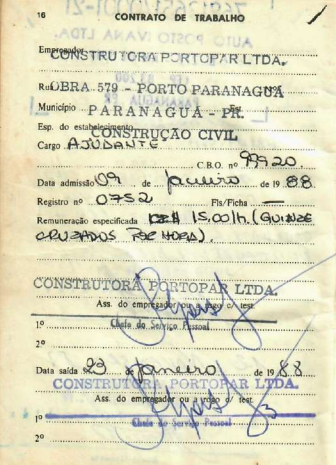 16 CONTRATO DE TRABALHO
Empregador CONSTRUTORA PORTOPAR LTDA.
Rua OBRA 579 - PORTO PARANAGUÁ Nº
Município PARANAGUÁ - PR. Est.
Esp. do estabelecimento CONSTRUÇÃO CIVIL
Cargo AJUDANTE
C.B.O. nº 99920
Data admissão 09 de janeiro de 19 88
Registro nº 0752 Fls/Ficha —
Remuneração especificada 15,00/h. (QUINZE
CRUZADOS POR HORA).
CONSTRUTORA PORTOPAR LTDA.
Ass. do empregador ou a rogo c/ test.
1º Chefe do Serviço Pessoal
2º
Data saída 23 de janeiro de 19 88
CONSTRUTORA PORTOPAR LTDA.
Ass. do empregador ou a rogo c/ test.
1º Chefe do Serviço Pessoal
2º